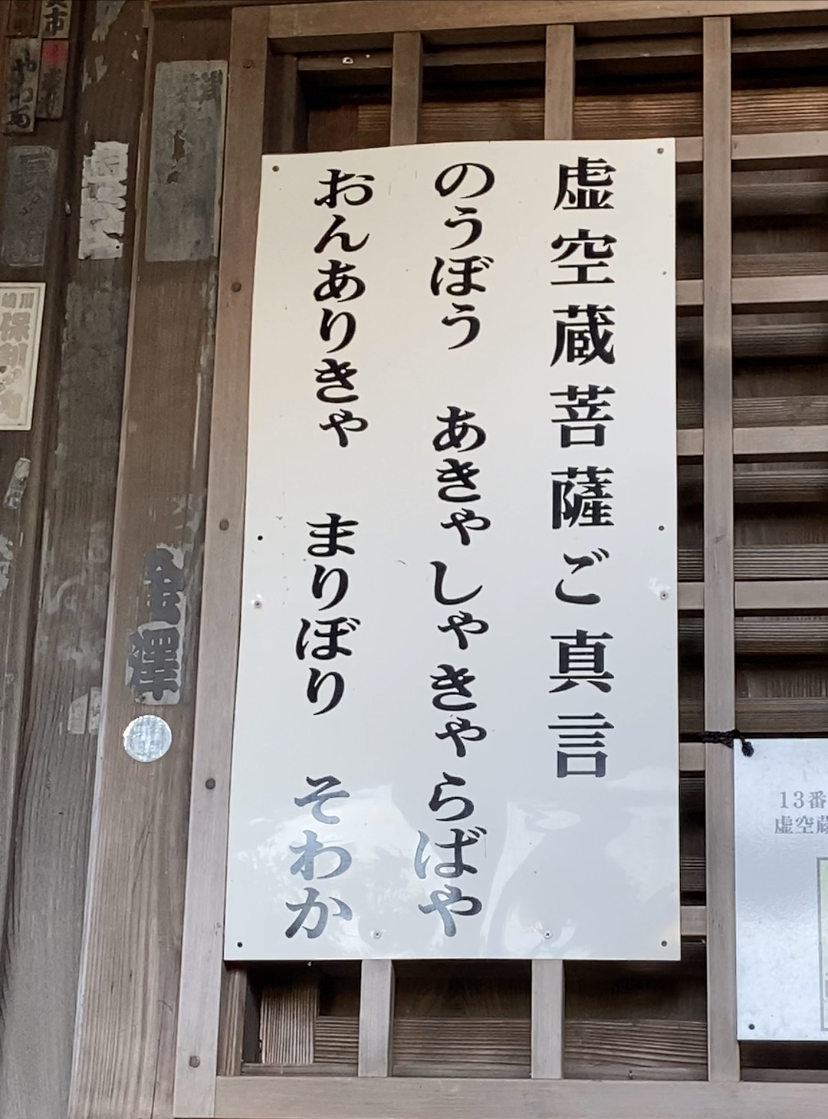 虚空蔵菩薩ご真言
のうぼう　あきゃしゃきゃらばや
おんありきゃ　まりぼり　そわか
13番
虚空蔵
金澤